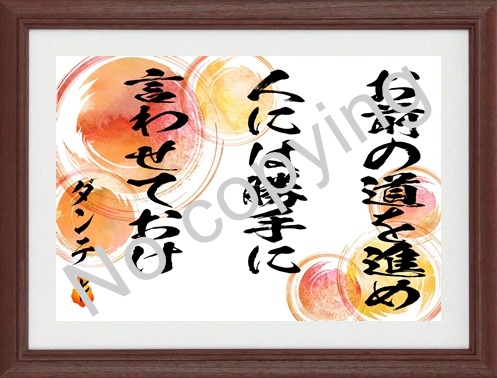 お前の道を進め
人には勝手に
言わせておけ
ダンテ
No copying